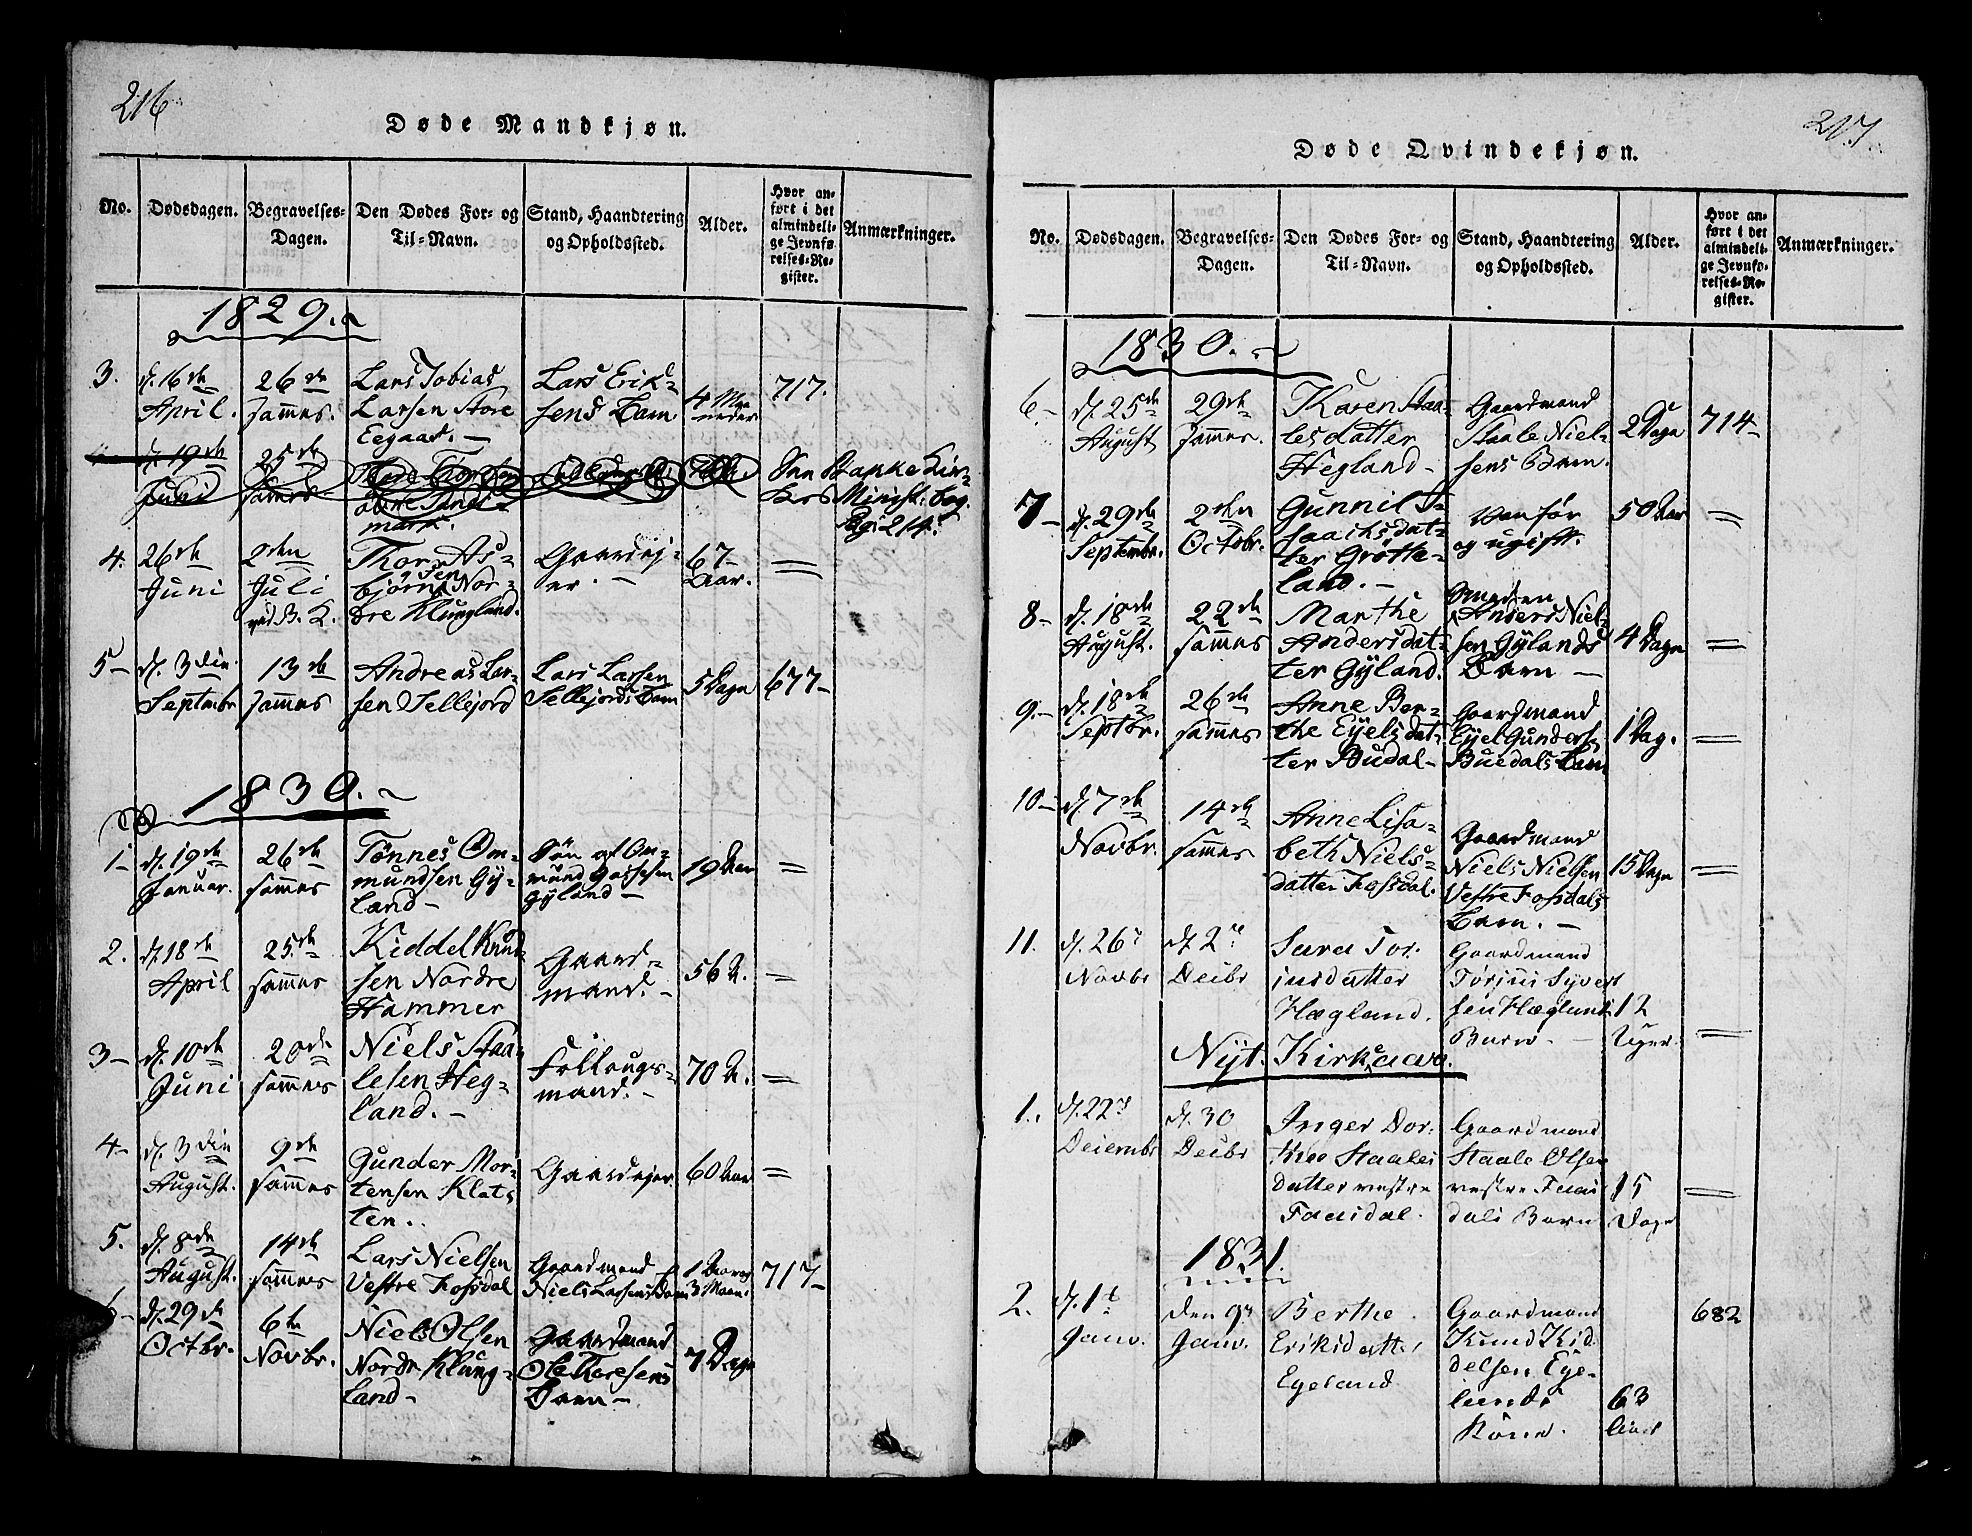 216
Døde Mandkjøn.
No.
Dødsdagen.
Begravelses-
Dagen.
Den Dødes For- og
Til-Navn.
Stand, Haandtering
og Opholdssted.
Alder.
Hvor an-
ført i det
almindeli-
ge Jevnfø-
relses-Re-
gister.
Anmærkninger.
1829.
3.
d. 16de
April.
26de
sammes.
Lars Tobias
Larsen Store
Eegaas.
Lars Erik-
sens Barn
4 Maa-
neder
717.
d. 19de
Juni
25de
sammes
obre Sands-
mark.
See Bakke Kir-
kes Minist. bog
Pag. 214.
4.
26de
Juni
2den
Juli
ved B. K.
Thor As-
bjørnsen Nor-
dre Klungland.
Gaardej-
er.
67
Aar.
=
5
d. 3die
Septembr
13de
sammes
Andreas Lar-
sen Sellejord
Lars Larsen
Sellejords Barn
5 Dage
677
1830.
1
d. 19de
Januar.
26de
sammes
Tønnes Om-
mundsen Gy-
land
Søn af Om-
mund
Gyland
19 Aar
=
2.
d. 18de
April
25de
sammes
Kiddel Knud-
sen Nordre
Hammer
Gaard-
mand.
56 A.
=
3
d. 10de
Juni
20de
sammes
Niels Staa-
lesen Heg-
land.
Follougs-
mand.
70 A.
=
4
d. 3die
August.
9de
sammes
Gunder Mor-
tensen Klats
ten.
Gaardejer
60 Aar
=
5.
d. 8de
August.
14de
sammes
Lars Nielsen
Vestre Fossdal
Gaardmand
Niels Larsens Barn
1 Aar og
3 Maan.
717
6
d. 29de
Octbr.
6te
Novbr.
Niels Olsen
Nordr Klung-
land
Gaardmand
Ole Toresens
Barn
7 Dage
217.
Døde Qvindekjøn.
No.
Dødsdagen.
Begravelses-
Dagen.
Den Dødes For- og
Til-Navn.
Stand, Haandtering
og Opholdssted.
Alder.
Hvor an-
ført i det
almindeli-
ge Jevnfø-
relses-Re-
gister.
Anmærkninger.
1830.
6
d. 25de
August
29de
sammes.
Karen Staa-
lesdatter
Hegland
Gaardmand
Staale Niel-
sens Barn.
2 Dage
714
7
d. 29de
Septembr.
2den
Octobr.
Gunnil I-
saachsdat-
ter Grøtte-
land.
Vanfør
og ugift.
50 Aar
=
8
d. 18de
August.
22de
sammes
Marthe
Andersdat-
ter Gyland.
Anders Niel-
sen Gylands
Barn
4 Dage
=
9.
d. 18de
Septbr.
26de
sammes
Anne Ber-
the Eyelsdat-
ter Budal
Gaardmand
Eyel Gunders.
Buedals Barn
1 Dag.
=
10
d. 7de
Novbr.
14de
sammes
Anne Lisa-
beth Niels-
datter Fossdal.
Gaardmand
Niels Nielsen
Vestre Fossdals
Barn.
15 Dage
=
11.
d. 26de
Novbr
d. 2de
Decbr
Sara Tor-
jusdatter
Hægland.
Gaardmand
Torjus Syvert
sen Hæglands
Barn
12
Uger.
=
Nyt. Kirkeaar.
1.
d. 22de
Decembr
d. 30
Decbr
Inger Dor-
thea Staales
datter vestre
Fausdal.
Gaardmand
Staale Olsen
vestre Faus
dals Barn
15
Dage
=
1831.
2.
d. 1te
Janv.
den 9de
Janv.
Berthe
Eriksdatter
Egeland
Gaardmand
Knud Kid
delsen Ege-
lands
Kone.
63
Aar
682